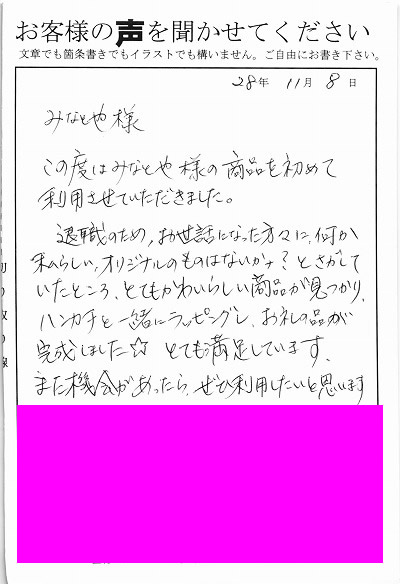 お客様の声を聞かせてください
文章でも箇条書きでもイラストでも構いません。ご自由にお書き下さい。
28年 11月 8日
みなとや様
この度はみなとや様の商品を初めて
利用させていただきました。
退職のため、お世話になった方々に、何か
私らしい、オリジナルのものはないかナ?とさがして
いたところ、とてもかわいらしい商品が見つかり、
ハンカチと一緒にラッピングし、お礼の品が
完成しました☆ とても満足しています。
また機会があったら、ぜひ利用したいと思います
切り取り線